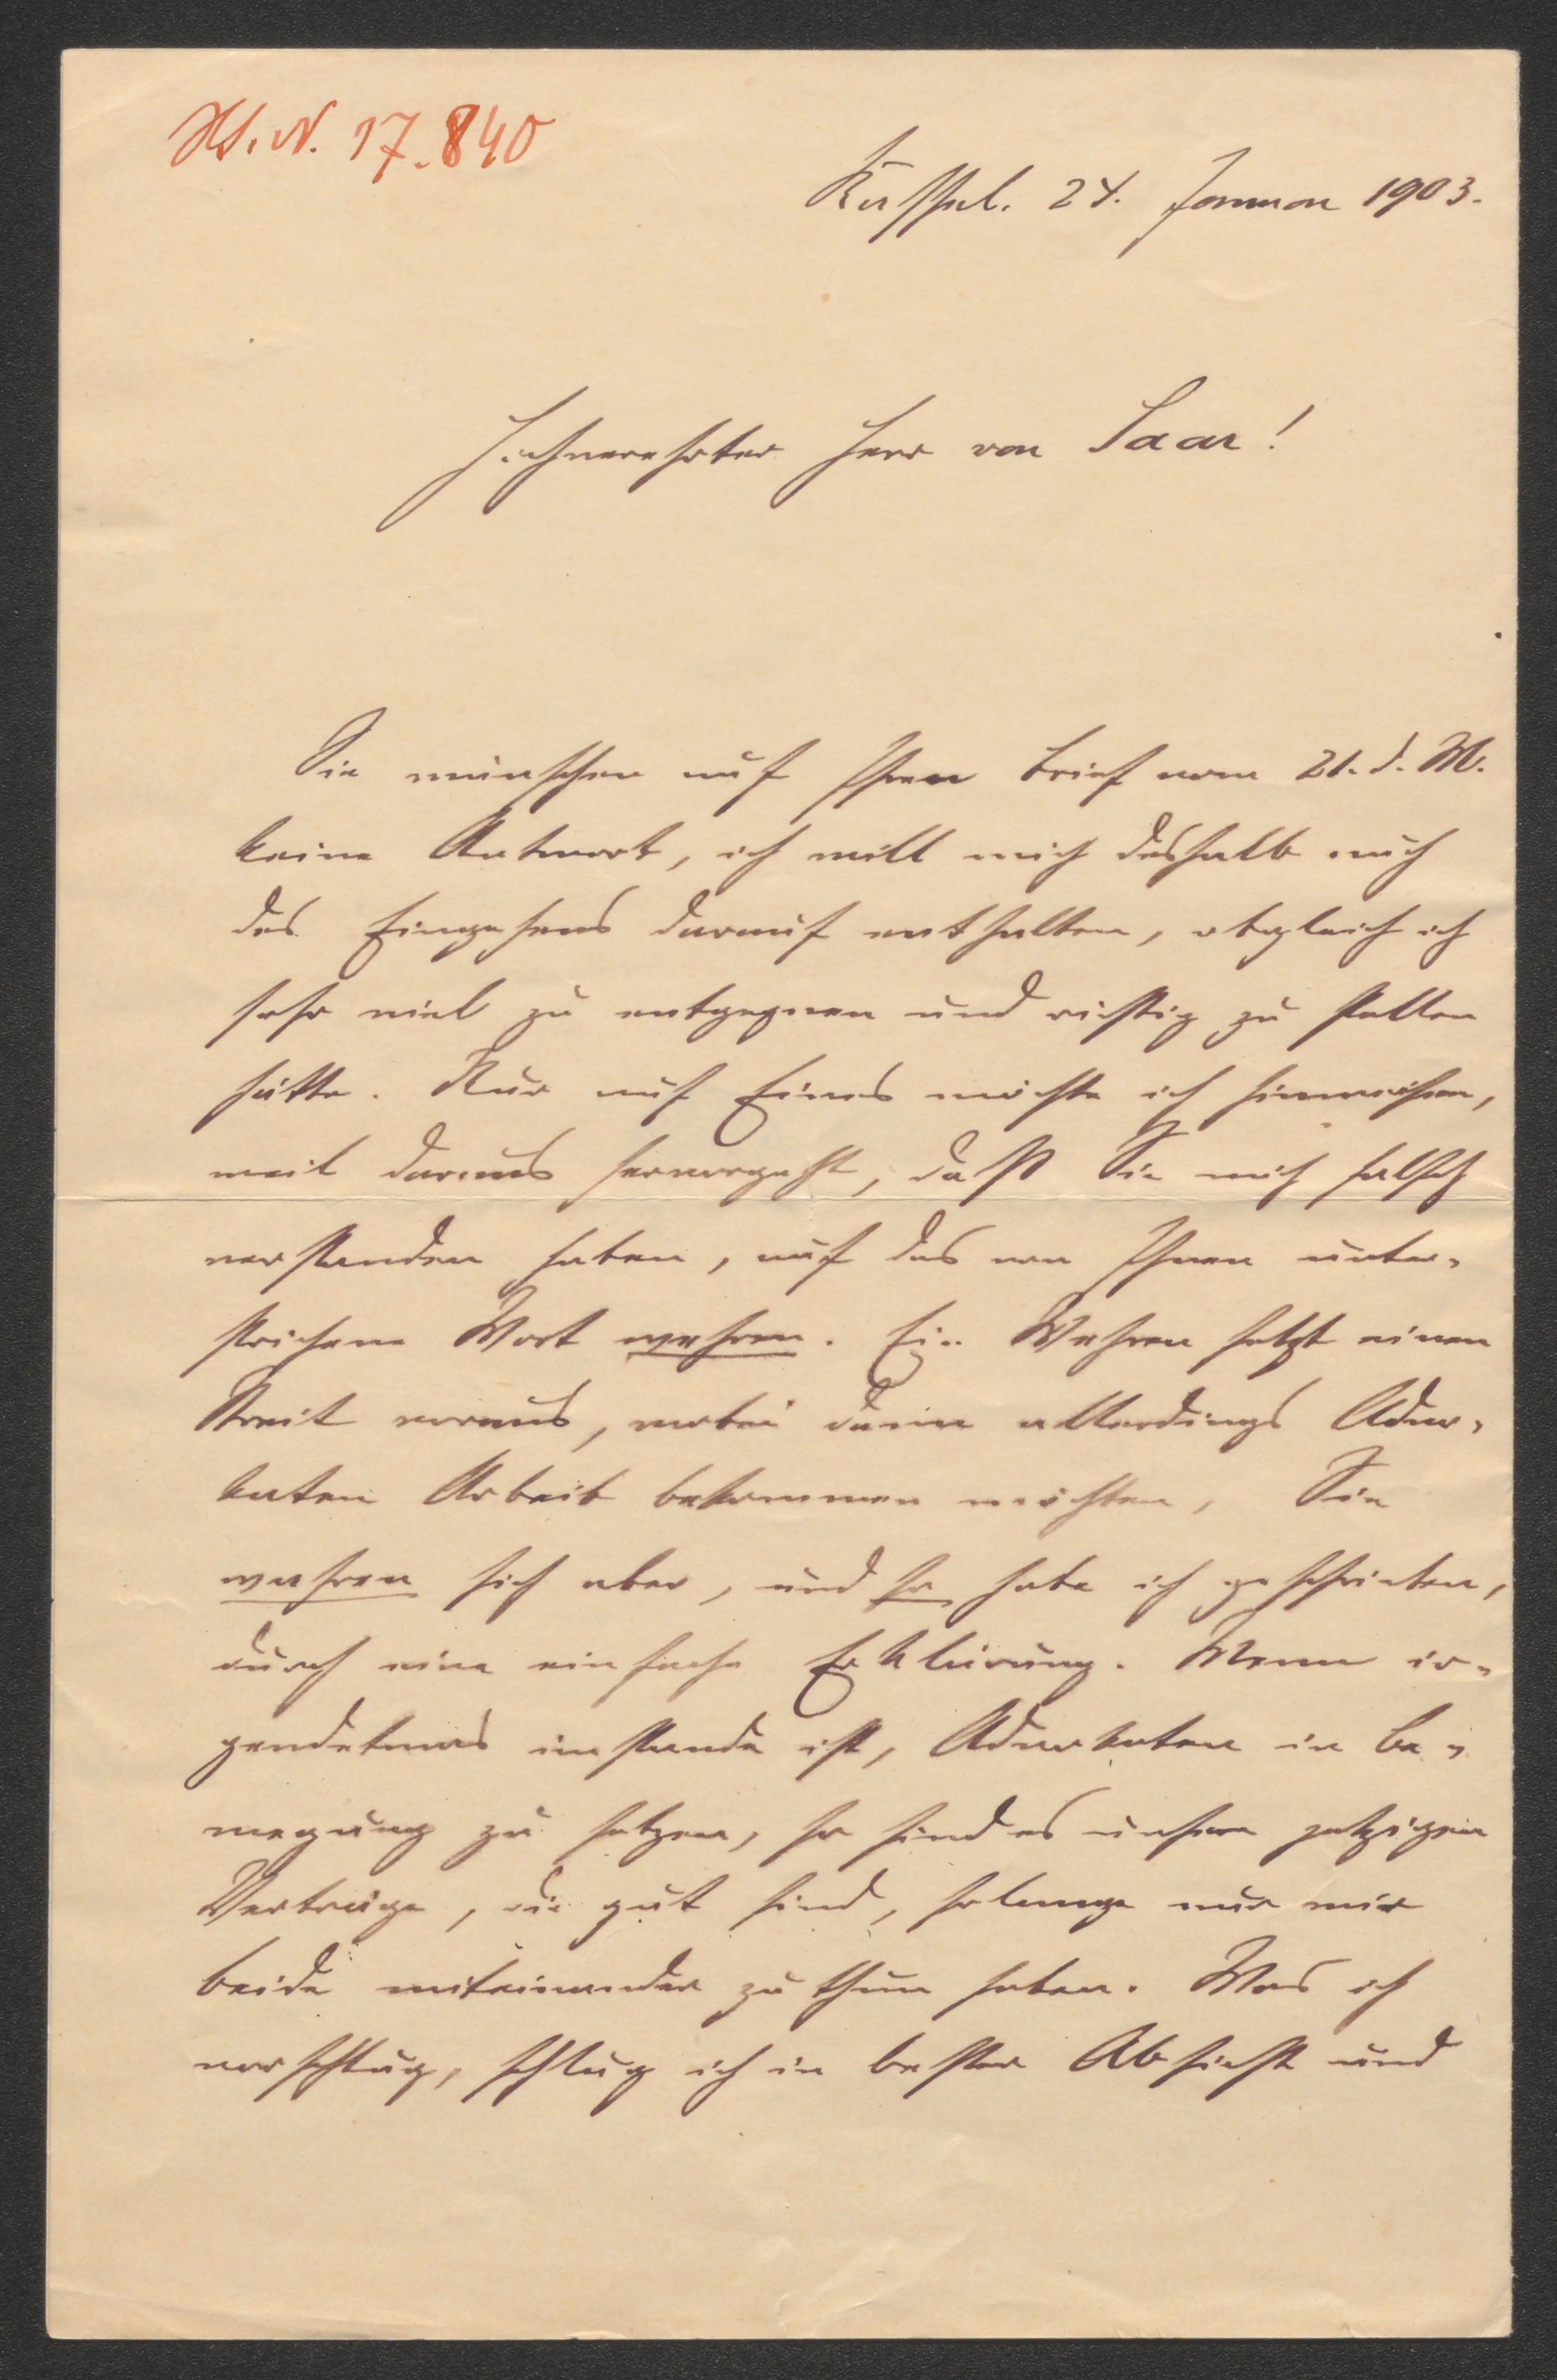 Hs. N. 17.840
Kassel. 24. Januar 1903.
Hochverehrter Herr von Saar!
Sie wünschen auf Ihren Brief vom 21. d. M.
keine Antwort, ich will mich deshalb auch
des Eingehens darauf enthalten, obgleich ich
sehr viel zu entgegnen und richtig zu stellen
hätte. Nur auf Eines möchte ich hinweisen,
weil daraus hervorgeht, daß Sie mich falsch
verstanden haben, auf das von Ihnen unter-
strichene Wort wahren. Ein Wahren setzt einen
Streit voraus, wobei dann allerdings Advo-
katen Arbeit bekommen möchten, Sie
wahren sich aber, und so habe ich geschrieben,
durch eine einfache Erklärung. Wenn ir-
gendetwas imstande ist, Advokaten in Be-
wegung zu setzen, so sind es unsere jetzigen
Verträge, die gut sind, solange nur wir
beide miteinander zu thun haben. Was ich
vorschlug, schlug ich in bester Absicht und